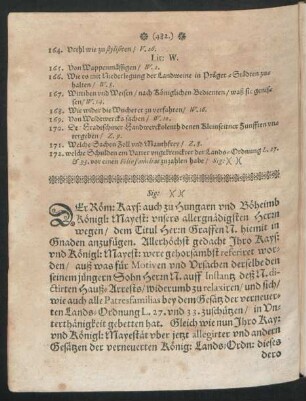 (482.)
164. Urthl wie zu
Lit: W.
165. Von Wappenmässigen / W. 1.
166. Wie es mit Niederlegung der Landweine in Präger-Städten zu-
halten / W. 5.
167. Wittiben und Wesen / nach Königlichen Bedienten / was sie genies-
sen / W. 14.
168. Wie wider die Wucherer zu verfahren / W. 18.
169. Von Waldewercks sachen / W. 10.
170. Zu Stradtschauer Handwerckslenth denen Kleinseitner Zunfften
ergeben / Z. 9.
171. Welche Sachen Zoll und Mauthfrey / Z. 3.
172. welche Schulden ein Vatter vermög der Landes-Ordnung L. 27.
& 33. vor einen filium-familias zu zahlen habe / Sig: X X
Sig: X X
DEr Röm: Kays: auch zu Hungarn und Böheimb
Königl: Mayest: unsers allergnädigisten Herrn
wegen / dem Titul Herrn Graffen N. hiemit in
Gnaden anzufügen. Allerhöchst gedacht Ihro Kays:
und Königl: Mayest: were gehorsambst referiret wor-
den / auß was für Motiven und Ursachen derselbe den
seinem jüngern Sohn Herrn N. auff Instantz deß N. di-
ctirten Hauß-Arrests / widerumb zu relaxiren / und sich /
wie auch alle Patresfamilias bey dem Gesätz der verneuer-
ten Lands-Ordnung L. 27. und 33. zu schützen / in Un-
terthänigkeit gebetten hat. Gleich wie nun Ihro Kay:
und Königl: Mayestät über jetzt allegirter und andern
Gesätzen der verneuerten König: Lands-Ordn: dieses
dero